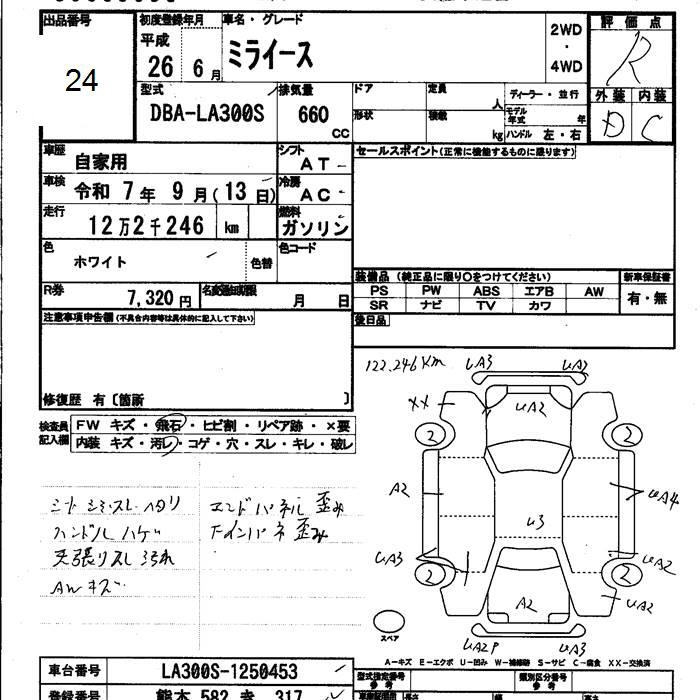 出品番号
24
初度登録年月
平成
26 6 月
車名・グレード
ミライース
2WD
・
4WD
評価点
R
外装 内装
D C
型式
DBA-LA300S
排気量
660
CC
ドア
定員
人
ディーラー・並行
形状
積載
kg
モデル年式 年
ハンドル 左・右
車歴
自家用
シフト
AT
セールスポイント(正常に機能するものに限ります)
車検
令和 7 年 9 月(13 日)
冷房
AC
走行
12万2千246 km
燃料
ガソリン
色
ホワイト
色替
色コード
R券
7,320 円
名変期限
月 日
装備品 (純正品に限り○をつけてください)
新車保証書
PS PW ABS エアB AW
SR ナビ TV カワ
有・無
注意事項申告欄(不具合内容等は具体的に記入して下さい)
後日品
修復歴 有〔箇所 〕
検査員記入欄
FW キズ・飛石・ヒビ割・リペア跡・×要
内装 キズ・汚レ・コゲ・穴・スレ・キレ・破レ
シート シミ・スレ・ヘタリ
ハンドル ハゲ
天張リスレ 汚れ
AW キズ
エンドパネル 歪み
122.246km
UA3
UA2
XX
2
A2
U3
UA4
UA3
UA2
2
A2
UA2
UA2P
UA3
スペア
A-キズ E-エクボ U-凹み W-補修跡 S-サビ C-腐食 XX-交換済
車台番号
LA300S-1250453
型式指定番号
参考
類別区分番号
参考
登録番号
熊本 582 き 317
長さ
幅
高さ